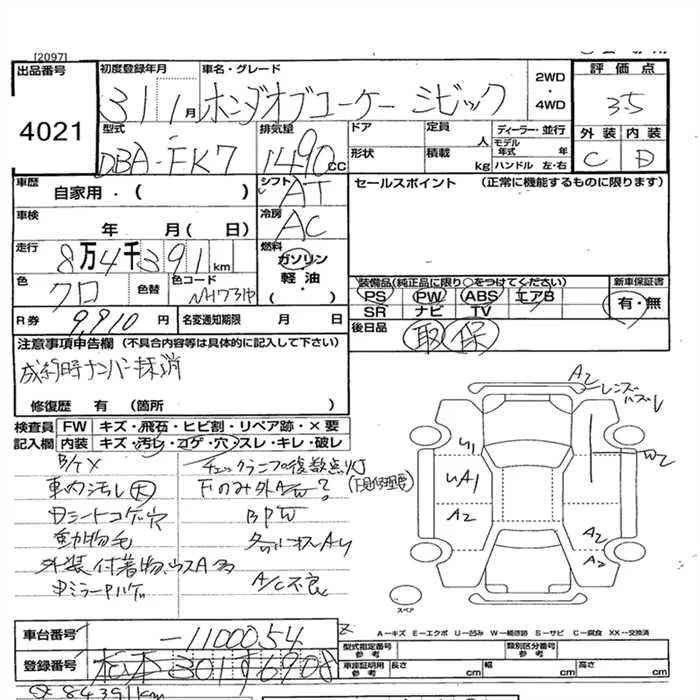 [2097]
出品番号 初度登録年月 車名・グレード 2WD 評価点
4021 31 1月 ホンダオブユーケー シビック ・ 3.5
4WD
型式 排気量 ドア 定員 人 ディーラー・並行 外装 内装
DBA-FK7 1490CC 形状 積載 kg モデル年式 年 C D
ハンドル 左・右
車歴 自家用・( ) シフト AT セールスポイント (正常に機能するものに限ります)
車検 年 月( 日) 冷房 AC
走行 8万4千391km 燃料 ガソリン
軽油・( )
色 クロ 色替 色コード NH731P
装備品(純正品に限り○をつけてください) 新車保証書
PS PW ABS エアB 有・無
SR ナビ TV
R券 9,910円 名変通知期限 月 日 後日品 取 保
注意事項申告欄 (不具合内容等は具体的に記入して下さい)
成約時ナンバー抹消
修復歴 有 (箇所
検査員 FW キズ・飛石・ヒビ割・リペア跡・×要
記入欄 内装 キズ・汚レ・コゲ・穴・スレ・キレ・破レ
A2 レンズ
チェックランプ複数点灯
車内汚レ大 下のみ外
シートコゲ穴
動物毛
外装付着物
ミラー A/C不良
U1
UA1
A2
W2
A2
A2
スペア
A-キズ E-エクボ U-凹み W-補修跡 S-サビ C-腐食 XX-交換済
車台番号 -1100054 型式指定番号 類別区分番号
参考 参考
登録番号 301 6908 車庫証明用 長さ cm 幅 cm 高さ cm
参考
84391km